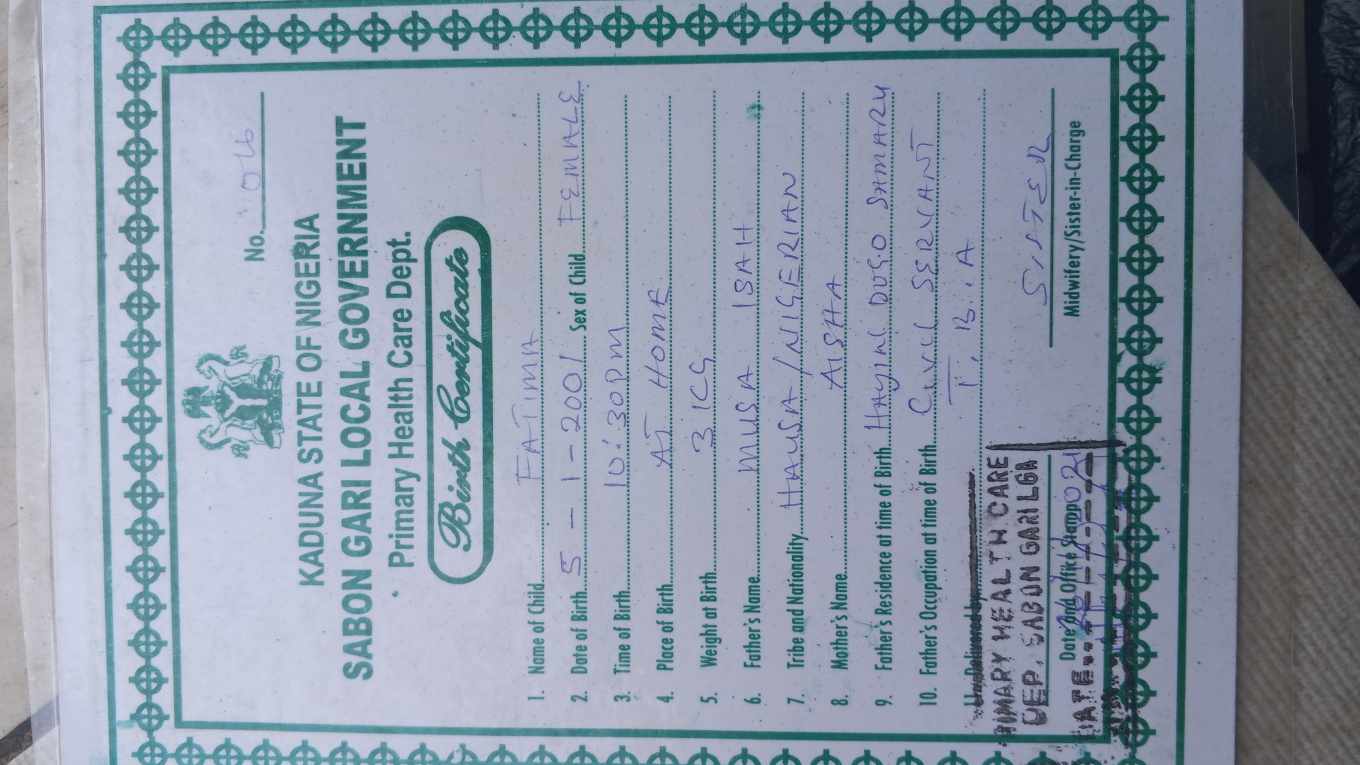 No. 046
KADUNA STATE OF NIGERIA
SABON GARI LOCAL GOVERNMENT
Primary Health Care Dept.
Birth Certificate
1. Name of Child FATIMA
2. Date of Birth 5 - 1 - 2001 Sex of Child FEMALE
3. Time of Birth 10:30PM
4. Place of Birth AT HOME
5. Weight at Birth 3 KG
6. Father's Name MUSA ISAH
7. Tribe and Nationality HAUSA/NIGERIAN
8. Mother's Name AISHA
9. Father's Residence at time of Birth HAYIN DOGO SAMARU
10. Father's Occupation at time of Birth CIVIL SERVANT
11. Delivered by T.B.A
PRIMARY HEALTH CARE
DEP. SABON GARI LGA
Date and Office Stamp
DATE
SISTER
Midwifery/Sister-in-Charge